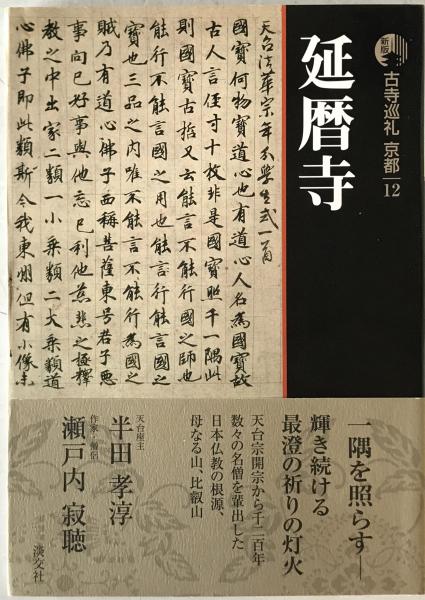 新版
古寺巡礼 京都 12
延暦寺
天台法華宗年分學生式一首
國寶何物寶道心也有道心人名為國寶故
古人言徑寸十枚非是國寶照千一隅此
則國寶古哲又云能言不能行國之師也
能行不能言國之用也能行能言國之
寶也三品之内唯不能言不能行為國之
賊乃有道心佛子西稱菩薩東号君子悪
事向己好事與他忘己利他慈悲之極釋
教之中出家二類一小乗類二大乗類道
心佛子即此類斯今我東州但有小像未
一隅を照らす―
輝き続ける
最澄の祈りの灯火
天台宗開宗から千二百年
数々の名僧を輩出した
日本仏教の根源、
母なる山、比叡山
天台座主
半田 孝淳
作家・僧侶
瀬戸内 寂聴
淡交社